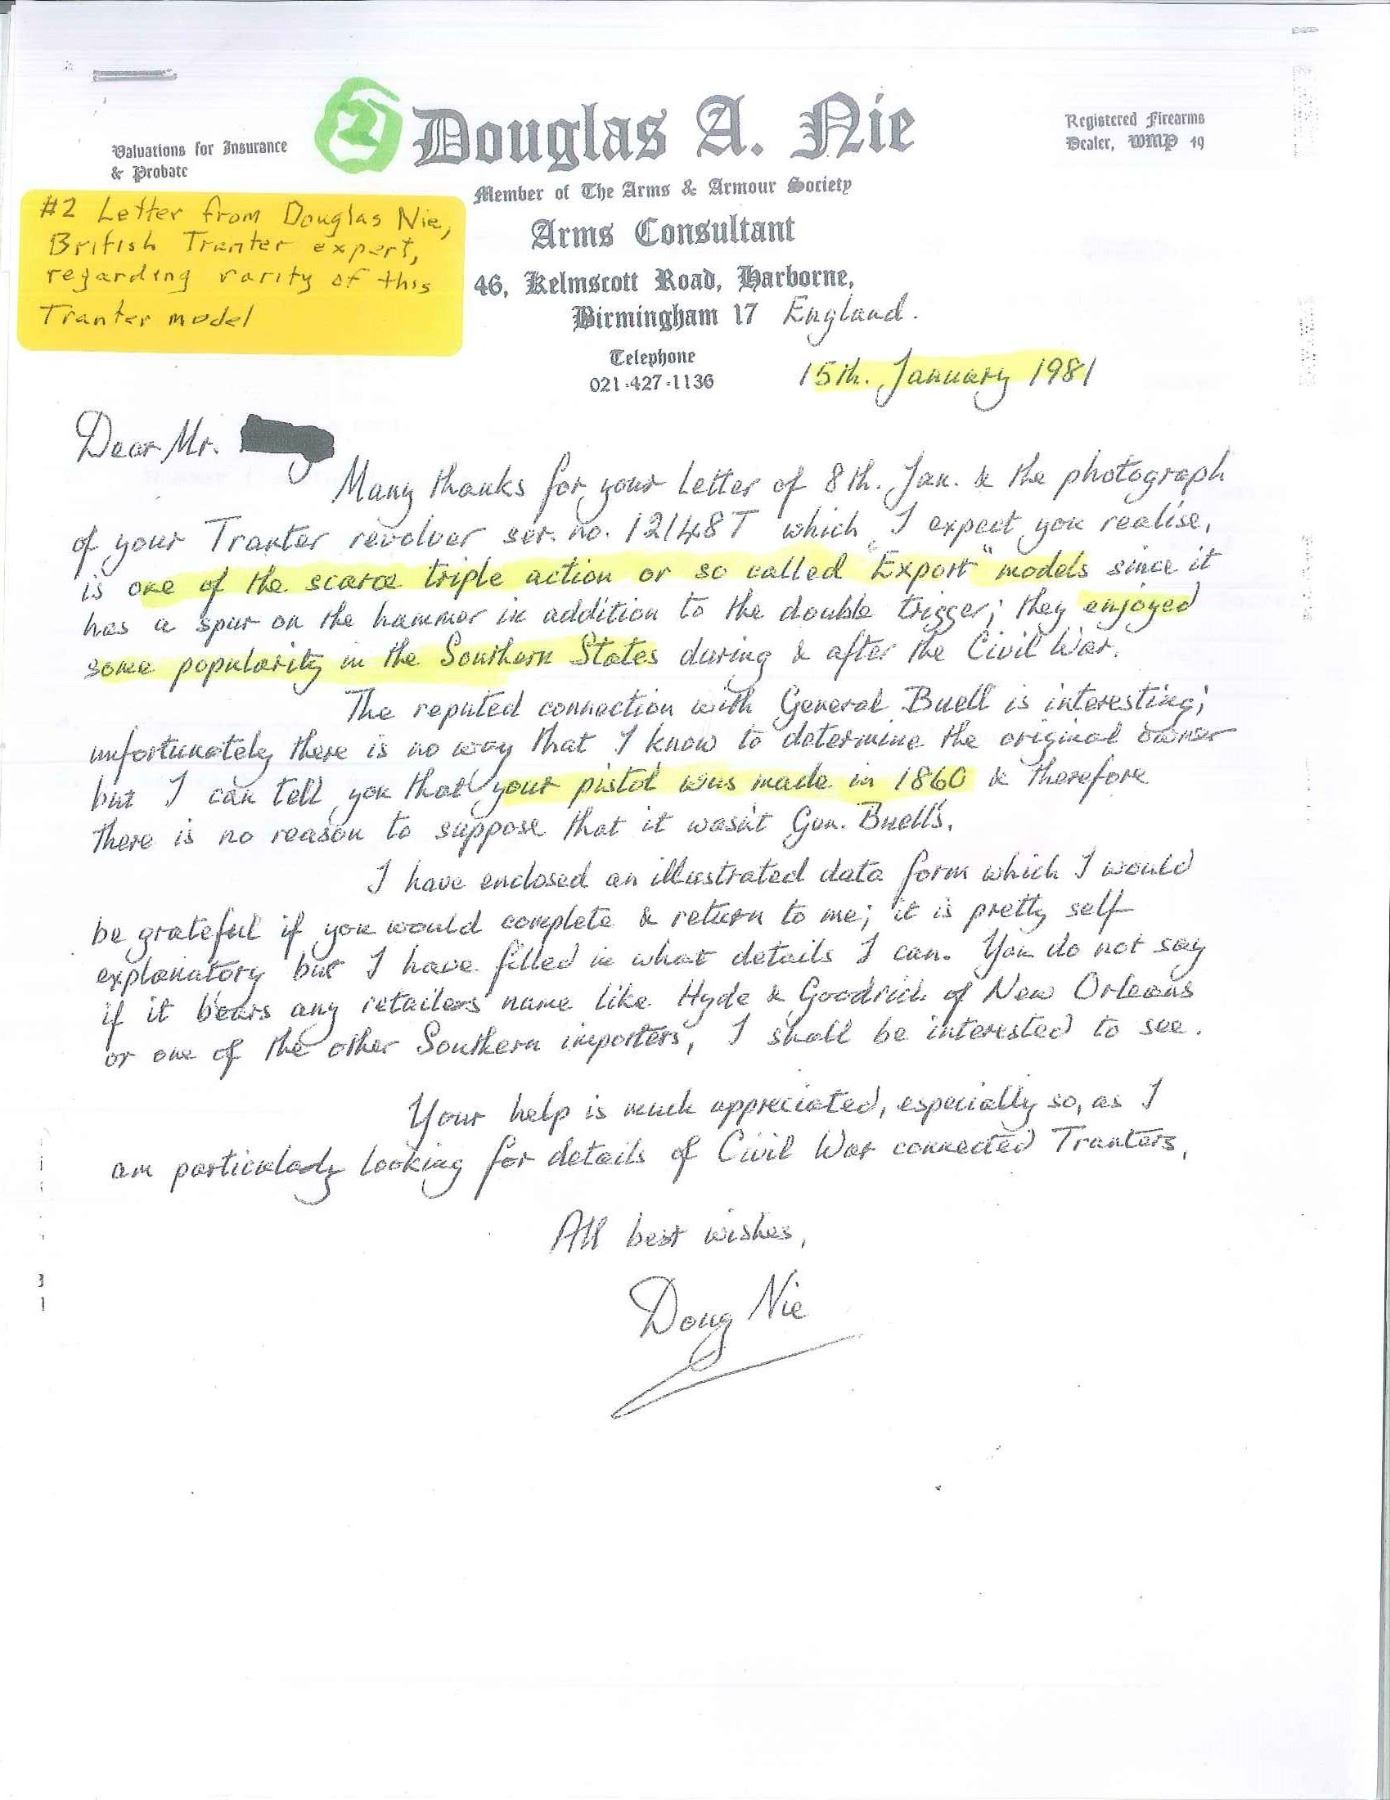 Valuations for Insurance
& Probate
2
Douglas A. Nie
Registered Firearms
Dealer, WMP 49
Member of The Arms & Armour Society
#2 Letter from Douglas Nie,
British Tranter expert,
regarding rarity of this
Tranter model
Arms Consultant
46, Kelmscott Road, Harborne,
Birmingham 17 England.
Telephone
021-427-1136
15th. January 1981
Dear Mr.
Many thanks for your letter of 8th. Jan. & the photograph
of your Tranter revolver ser. no. 12148T which, I expect you realise,
is one of the scarce triple action or so called "Export" models since it
has a spur on the hammer in addition to the double trigger; they enjoyed
some popularity in the Southern States during & after the Civil War.
The reputed connection with General Buell is interesting;
unfortunately there is no way that I know to determine the original owner
but I can tell you that your pistol was made in 1860 & therefore
there is no reason to suppose that it wasn't Gen. Buell's.
I have enclosed an illustrated data form which I would
be grateful if you would complete & return to me; it is pretty self
explanatory but I have filled in what details I can. You do not say
if it bears any retailers' name like Hyde & Goodrich of New Orleans
or one of the other Southern importers, I shall be interested to see.
Your help is much appreciated, especially so, as I
am particularly looking for details of Civil War connected Tranters.
All best wishes,
Doug Nie